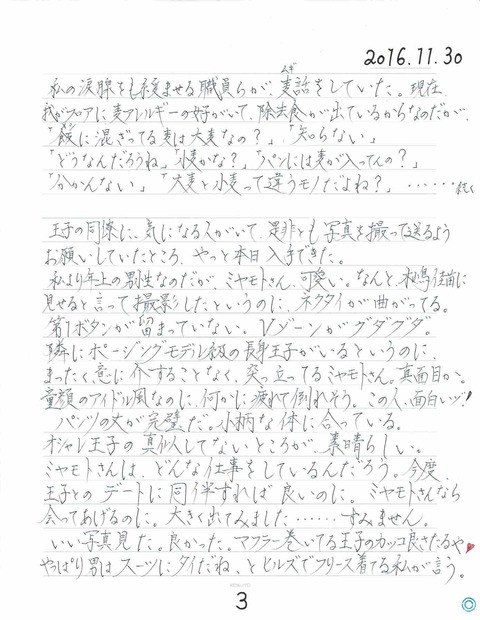 2016.11.30
私の涙腺をも緩ませる職員らが、麦話をしていた。現在、
我がフロアに麦アレルギーの好がいて、除去食が出ているからなのだが、
「飯に混ざってる麦は大麦なの？」「知らない」
「どうなんだろうね」「小麦かな？」「パンには麦が入ってんの？」
「分かんない」「大麦と小麦って違うモノだよね？」……続く
王子の同僚に、気になる人がいて、是非とも写真を撮って送るよう
お願いしていたところ、やっと本日入手できた。
私より年上の男性なのだが、ミヤモトさん、可愛い。なんと、木嶋佳苗に
見せると言って撮影したというのに、ネクタイが曲がってる。
第1ボタンが留まっていない。Vゾーンがグダグダ。
隣にポージングモデル級の長身王子がいるというのに、
まったく意に介することなく、突っ立ってるミヤモトさん。真面目か。
童顔のアイドル風なのに、何かに疲れて倒れそう。この人、面白いッ!
パンツの丈が完璧だ。小柄な体に合っている。
オシャレ王子の真似してないところが、素晴らしい。
ミヤモトさんは、どんな仕事をしているんだろう。今度、
王子とのデートに同伴すれば良いのに。ミヤモトさんなら
会ってあげるのに。大きく出てみました……すみません。
いい写真見た。良かった。マフラー巻いてる王子のカッコ良さたるや♥
やっぱり男はスーツにタイだね、とヒルズでフリース着てる私が言う。
3